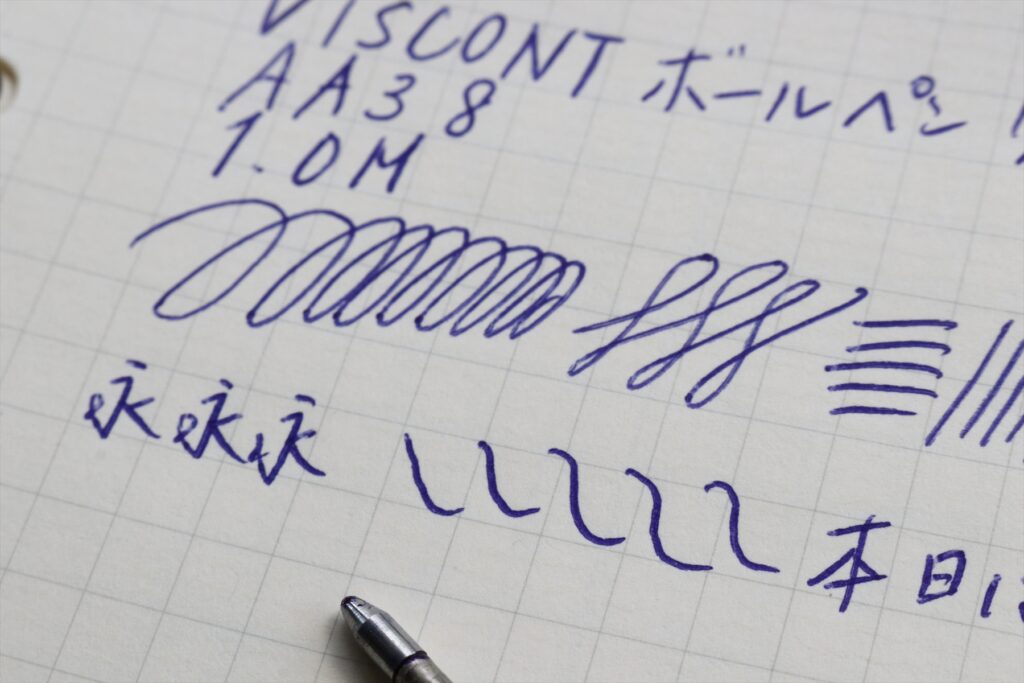 VISCONT ボールペン
AA38
1.0M
永永永
本日は